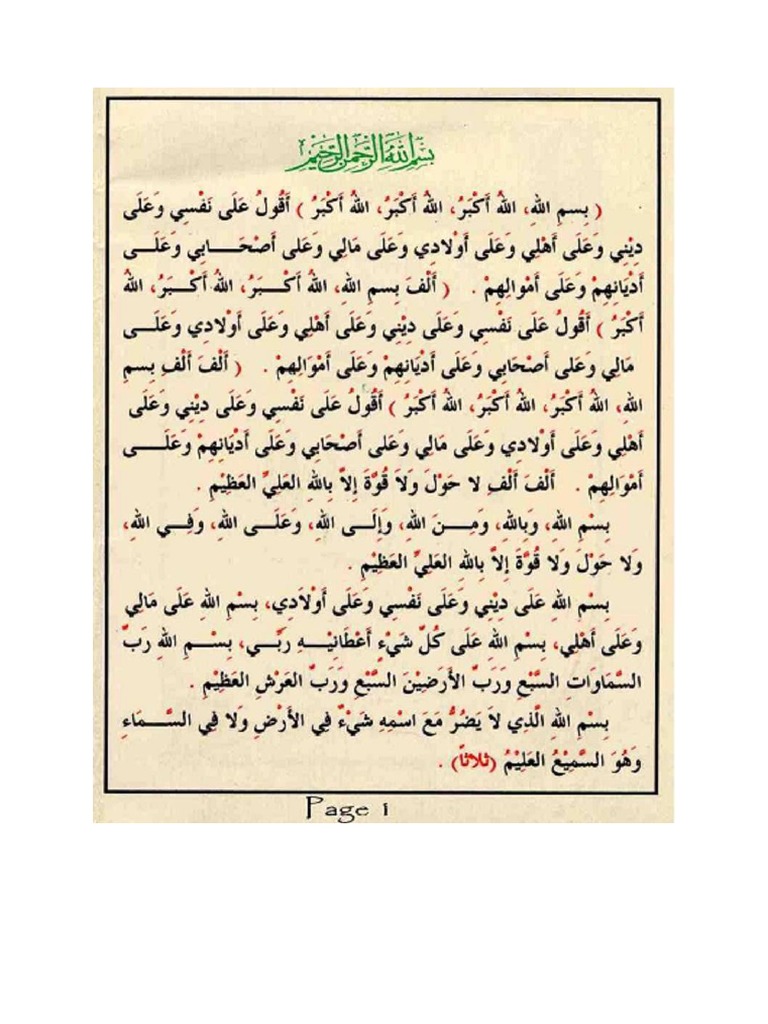 بِسْمِ اللهِ الرَّحْمٰنِ الرَّحِيْمِ
( بِسمِ اللهِ، اللهُ أَكْبَرُ، اللهُ أَكْبَرُ، اللهُ أَكْبَرُ ) أَقُولُ عَلَى نَفْسِي وَعَلَى
دِيْنِي وَعَلَى أَهْلِي وَعَلَى أَوْلادِي وَعَلَى مَالِي وَعَلى أَصْحَابِي وَعَلَى
أَدْيَانِهِمْ وَعَلَى أَمْوَالِهِمْ . ( أَلْفَ بِسمِ اللهِ، اللهُ أَكْبَرُ، اللهُ أَكْبَرُ، اللهُ
أَكْبَرُ ) أَقُولُ عَلَى نَفْسِي وَعَلَى دِيْنِي وَعَلَى أَهْلِي وَعَلَى أَوْلادِي وَعَلَى
مَالِي وَعَلى أَصْحَابِي وَعَلَى أَدْيَانِهِمْ وَعَلَى أَمْوَالِهِمْ . ( أَلْفَ أَلْفِ بِسمِ
اللهِ، اللهُ أَكْبَرُ، اللهُ أَكْبَرُ، اللهُ أَكْبَرُ ) أَقُولُ عَلَى نَفْسِي وَعَلَى دِيْنِي وَعَلَى
أَهْلِي وَعَلَى أَوْلادِي وَعَلَى مَالِي وَعَلى أَصْحَابِي وَعَلَى أَدْيَانِهِمْ وَعَلَى
أَمْوَالِهِمْ . أَلْفَ أَلْفِ لا حَوْلَ وَلاَ قُوَّةَ إِلاَّ بِاللهِ العَلِيِّ العَظِيْمِ .
بِسْمِ اللهِ، وَبِاللهِ، وَمِنَ اللهِ، وَإِلَى اللهِ، وَعَلَى اللهِ، وَفِي اللهِ،
وَلا حَوْلَ وَلا قُوَّةَ إِلاَّ بِاللهِ العَلِيِّ العَظِيْمِ .
بِسْمِ اللهِ عَلَى دِيْنِي وَعَلَى نَفْسِي وَعَلَى أَوْلاَدِي، بِسْمِ اللهِ عَلَى مَالِي
وَعَلَى أَهْلِي، بِسْمِ اللهِ عَلَى كُلِّ شَيْءٍ أَعْطَانِيْهِ رَبِّي، بِسْمِ اللهِ رَبِّ
السَّمَاوَاتِ السَّبْعِ وَرَبِّ الأَرَضِيْنَ السَّبْعِ وَرَبِّ العَرْشِ العَظِيْمِ .
بِسْمِ اللهِ الَّذِي لاَ يَضُرُّ مَعَ اسْمِهِ شَيْءٌ فِي الأَرْضِ وَلا فِي السَّمَاءِ
وَهُوَ السَّمِيْعُ العَلِيْمُ (ثلاثاً) .
Page 1